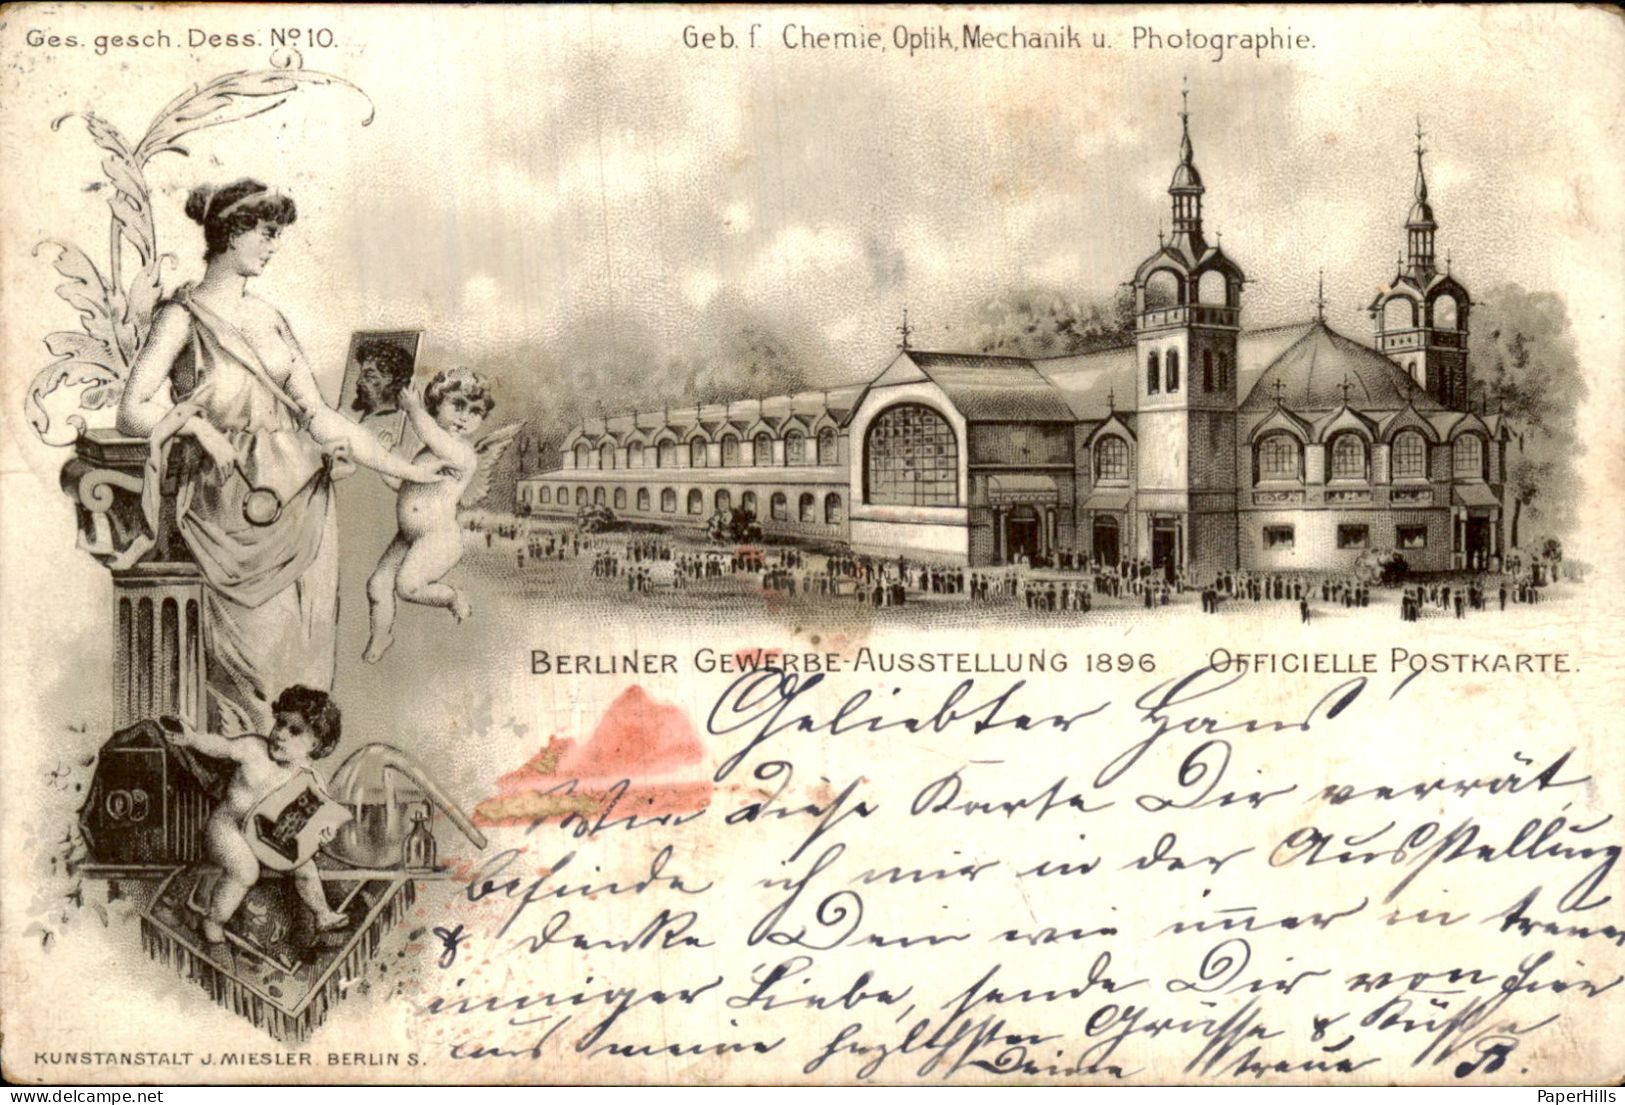 Ges. gesch. Dess. No 10.
Geb. f. Chemie, Optik, Mechanik u. Photographie.
BERLINER GEWERBE-AUSSTELLUNG 1896 OFFICIELLE POSTKARTE.
Geliebter Hans!
Wie diese Karte Dir verrät,
befinde ich mir in der Ausstellung
& denke Dein wie immer in treuer
inniger Liebe, sende Dir von hier
aus meine herzlichsten Grüsse & Küsse
Deine treue B.
KUNSTANSTALT J. MIESLER. BERLIN S.
PaperHills